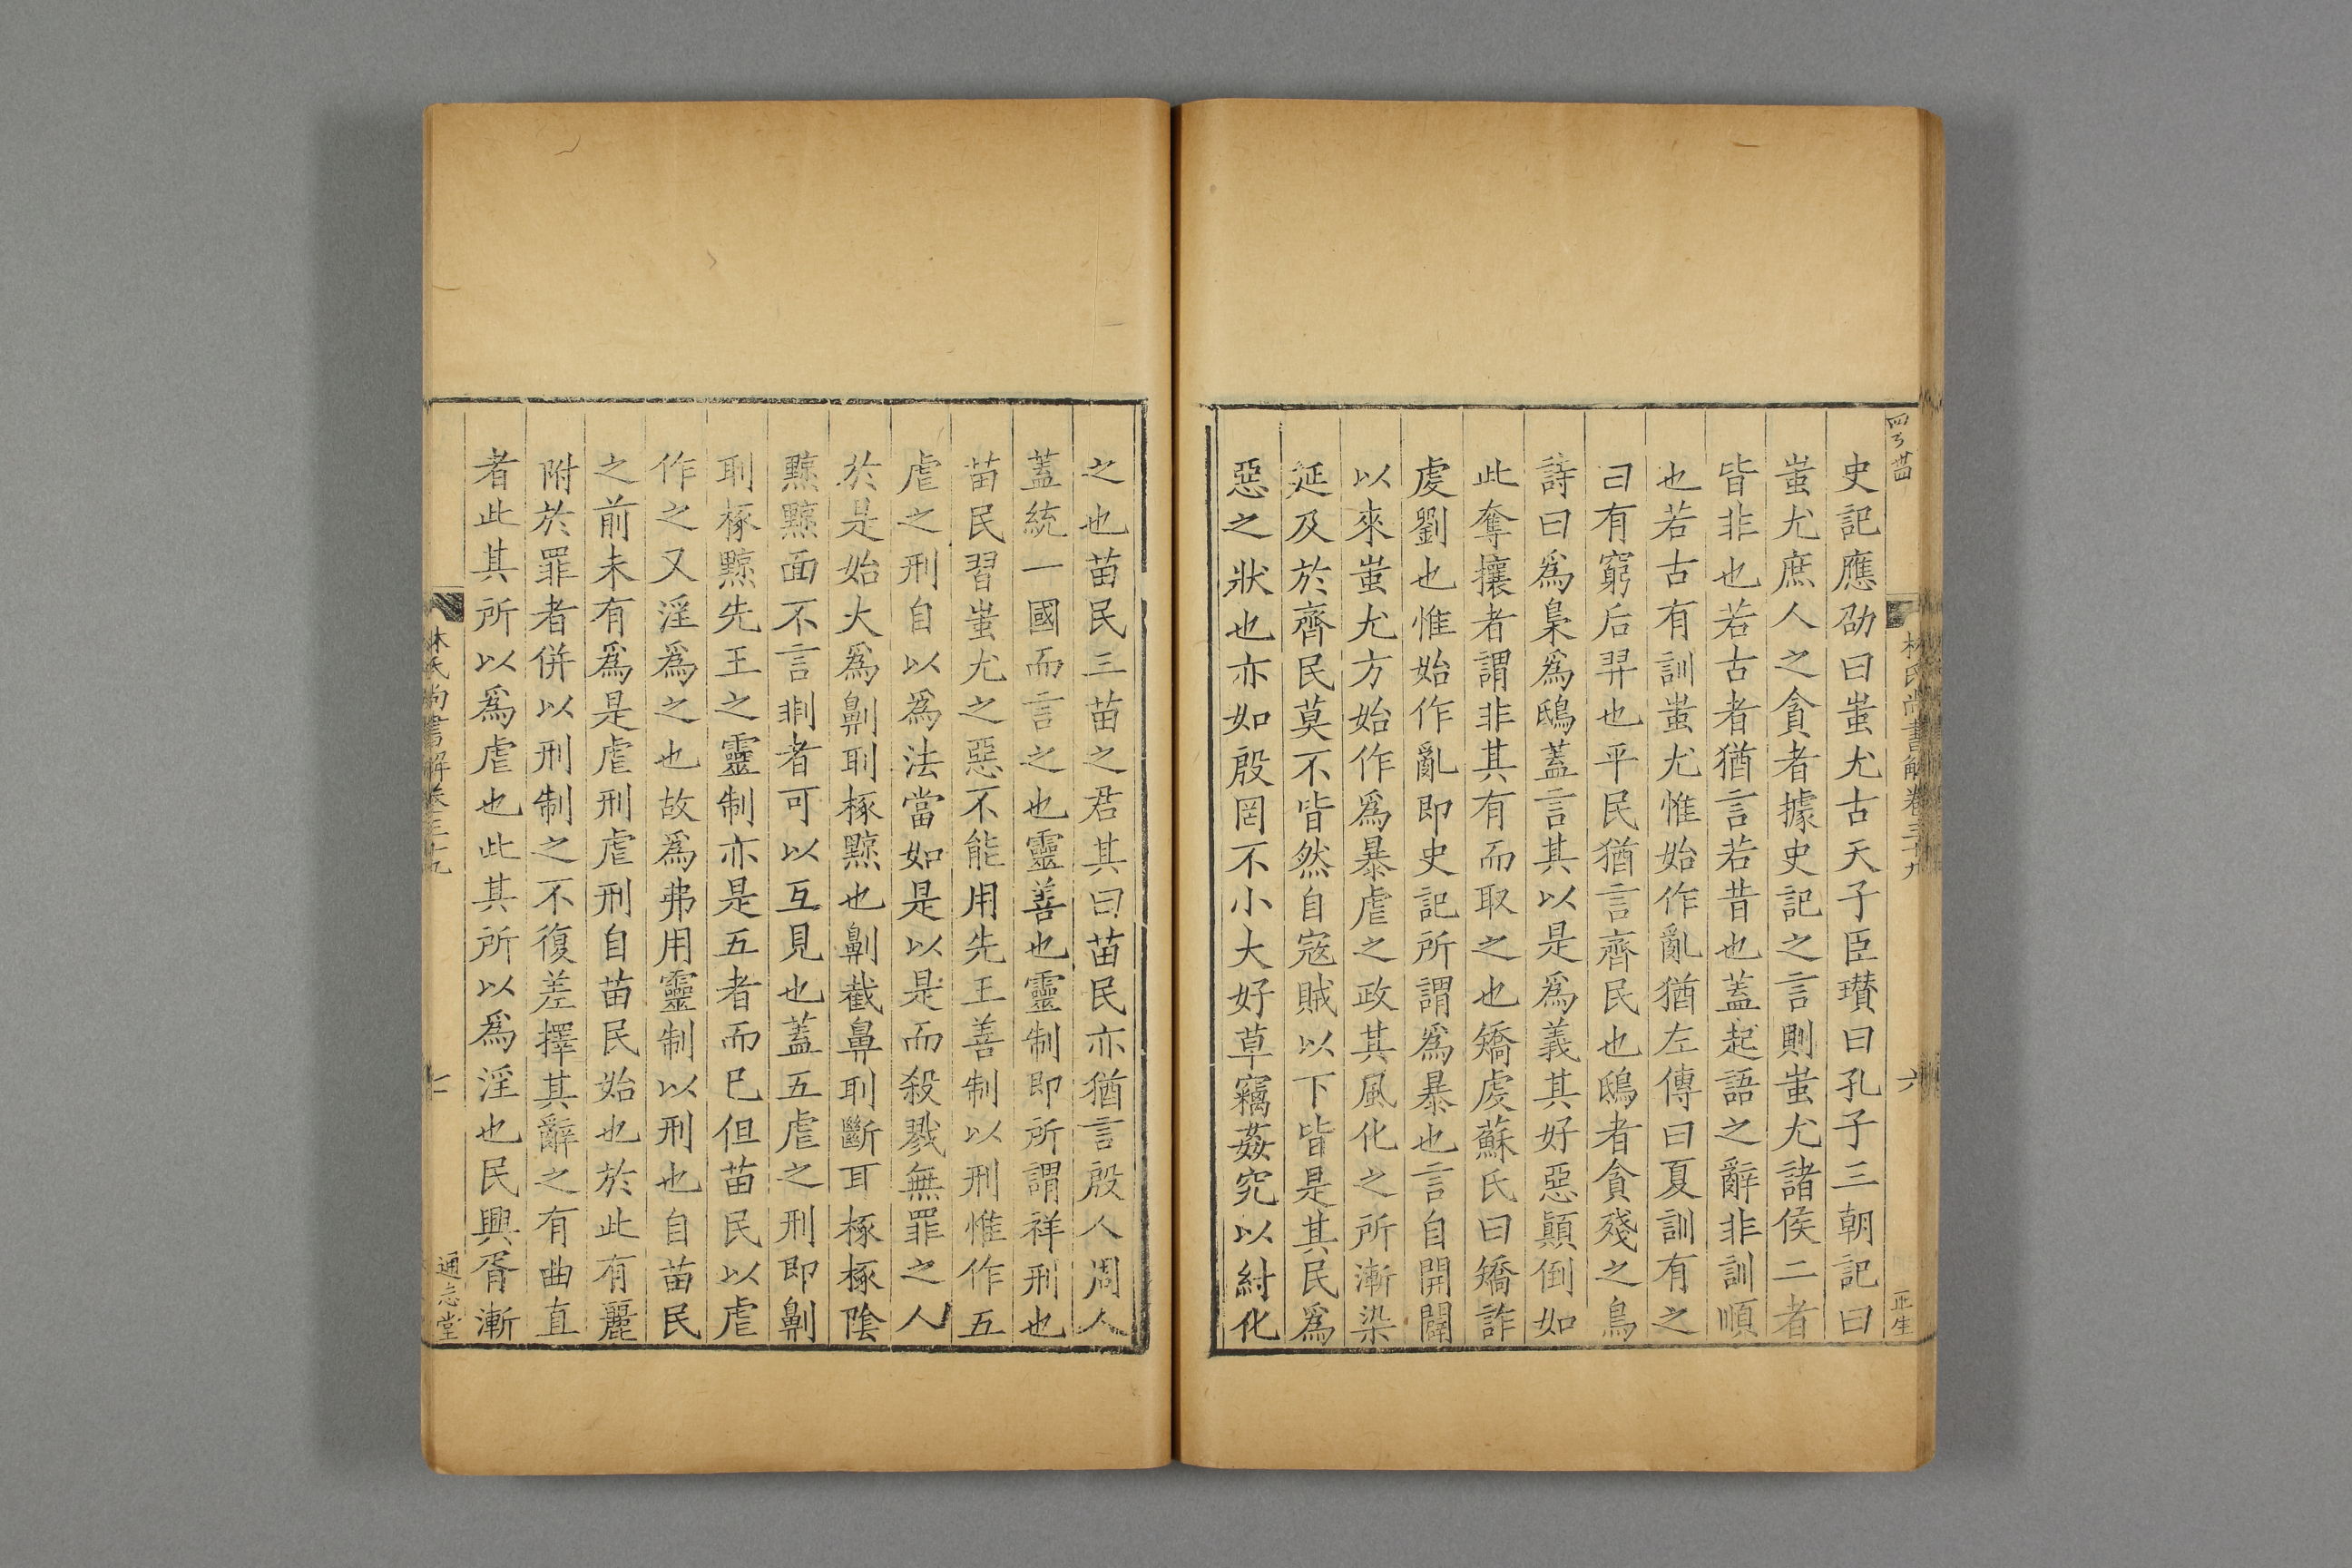 史記應劭曰蚩尤古天子臣瓚曰孔子三朝記曰
蚩尤庶人之貪者據史記之言則蚩尤諸侯二者
皆非也若古者猶言若昔也蓋起語之辭非訓順
也若古有訓蚩尤惟始作亂猶左傳曰夏訓有之
曰有窮后羿也平民猶言齊民也鴟者貪殘之鳥
詩曰爲梟爲鴟蓋言其以是爲義其好惡顚倒如
此奪攘者謂非其有而取之也矯虔蘇氏曰矯詐
虔劉也惟始作亂即史記所謂爲暴也言自開闢
以來蚩尤方始作爲暴虐之政其風化之所漸染
延及於齊民莫不皆然自寇賊以下皆是其民爲
惡之狀也亦如殷罔不小大好草竊姦宄以紂化
之也苗民三苗之君其曰苗民亦猶言殷人周人
蓋統一國而言之也靈善也靈制即所謂祥刑也
苗民習蚩尤之惡不能用先王善制以刑惟作五
虐之刑自以爲法當如是以是而殺戮無罪之人
於是始大爲劓刵椓黥也劓截鼻刵斷耳椓椓陰
黥黥面不言剕者可以互見也蓋五虐之刑即劓
刵椓黥先王之靈制亦是五者而已但苗民以虐
作之又淫爲之也故爲弗用靈制以刑也自苗民
之前未有爲是虐刑虐刑自苗民始也於此有麗
附於罪者併以刑制之不復差擇其辭之有曲直
者此其所以爲虐也此其所以爲淫也民興胥漸
林氏尚書解卷三十九
六
林氏尚書解卷三十九
七
通志堂